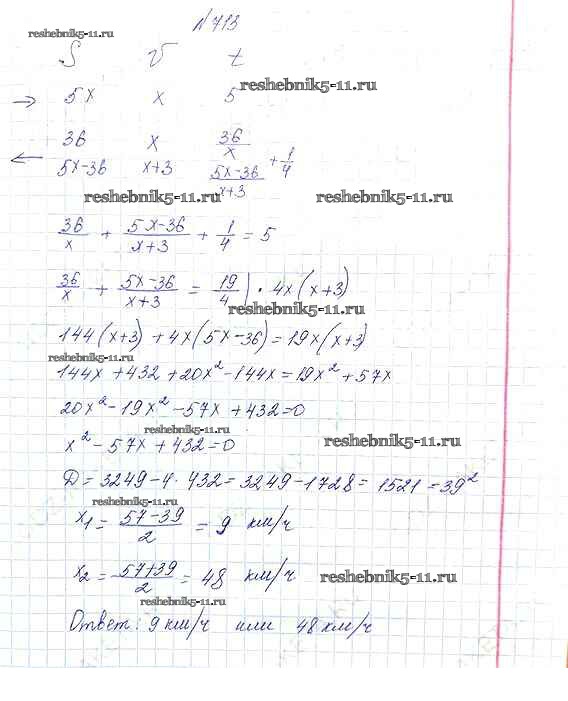 N 713
reshebnik5-11.ru
S V t
reshebnik5-11.ru
→ 5x x 5
36 x 36/x
← 5x-36 x+3 (5x-36)/(x+3) + 1/4
reshebnik5-11.ru reshebnik5-11.ru
36/x + (5x-36)/(x+3) + 1/4 = 5
36/x + (5x-36)/(x+3) = 19/4 | · 4x(x+3)
reshebnik5-11.ru
144(x+3) + 4x(5x-36) = 19x(x+3)
reshebnik5-11.ru
144x + 432 + 20x² - 144x = 19x² + 57x
20x² - 19x² - 57x + 432 = 0
reshebnik5-11.ru
x² - 57x + 432 = 0
reshebnik5-11.ru
D = 3249 - 4 · 432 = 3249 - 1728 = 1521 = 39²
reshebnik5-11.ru
x₁ = (57-39)/2 = 9 км/ч
x₂ = (57+39)/2 = 48 км/ч
reshebnik5-11.ru
reshebnik5-11.ru
Ответ: 9 км/ч или 48 км/ч